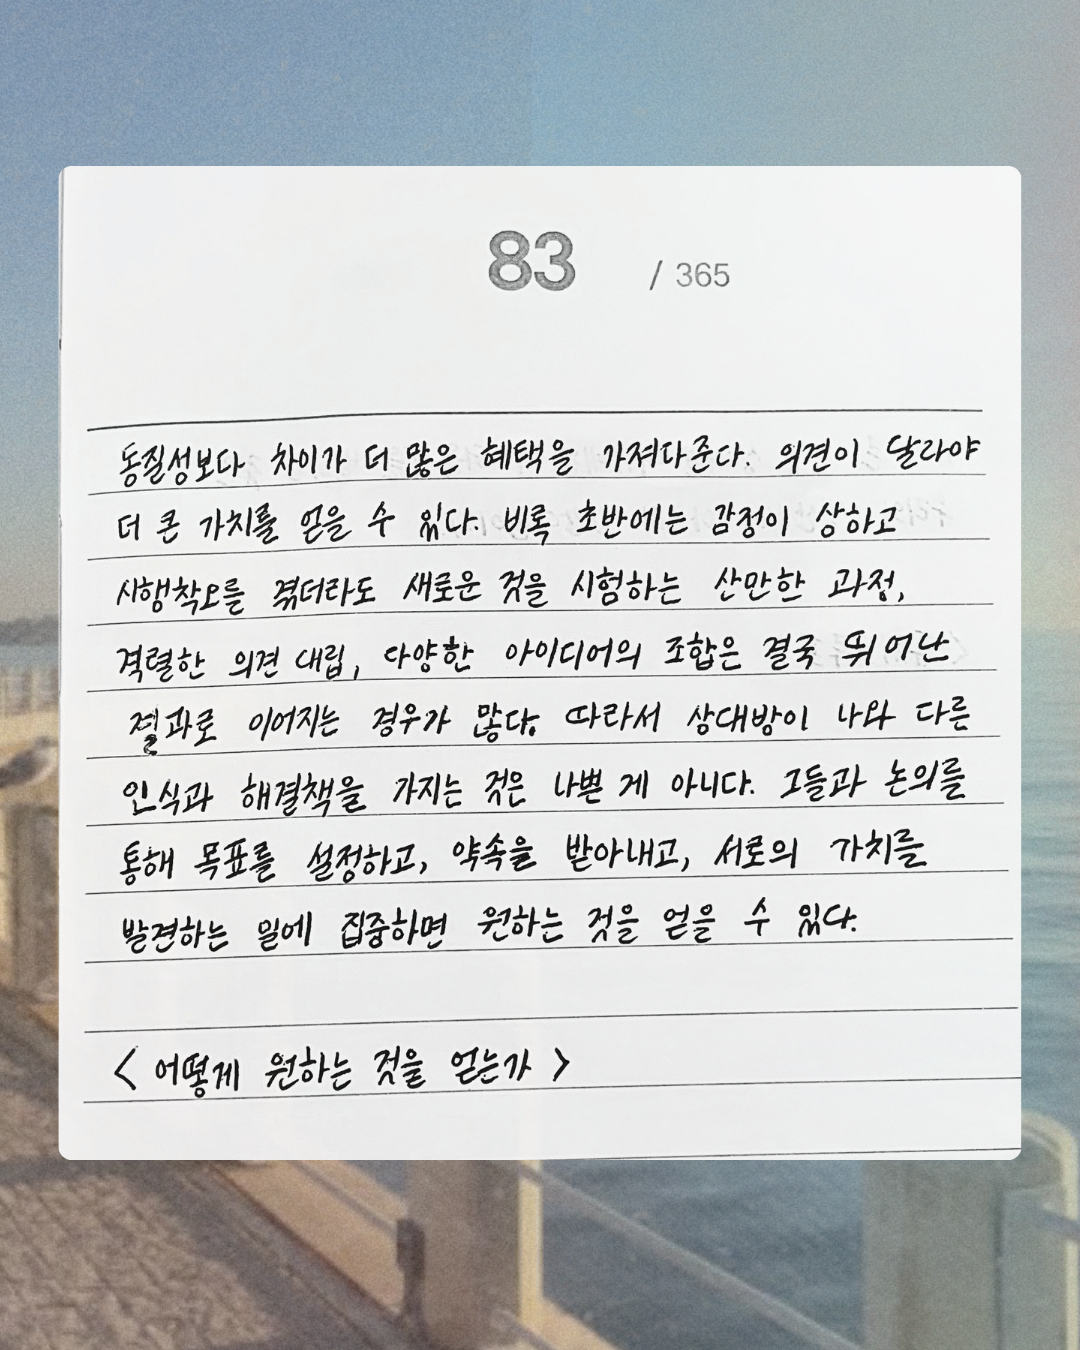 83 / 365
동질성보다 차이가 더 많은 혜택을 가져다준다. 의견이 달라야
더 큰 가치를 얻을 수 있다. 비록 초반에는 감정이 상하고
시행착오를 겪더라도 새로운 것을 시험하는 산만한 과정,
격렬한 의견 대립, 다양한 아이디어의 조합은 결국 뛰어난
결과로 이어지는 경우가 많다. 따라서 상대방이 나와 다른
인식과 해결책을 가지는 것은 나쁜 게 아니다. 그들과 논의를
통해 목표를 설정하고, 약속을 받아내고, 서로의 가치를
발견하는 일에 집중하면 원하는 것을 얻을 수 있다.
< 어떻게 원하는 것을 얻는가 >